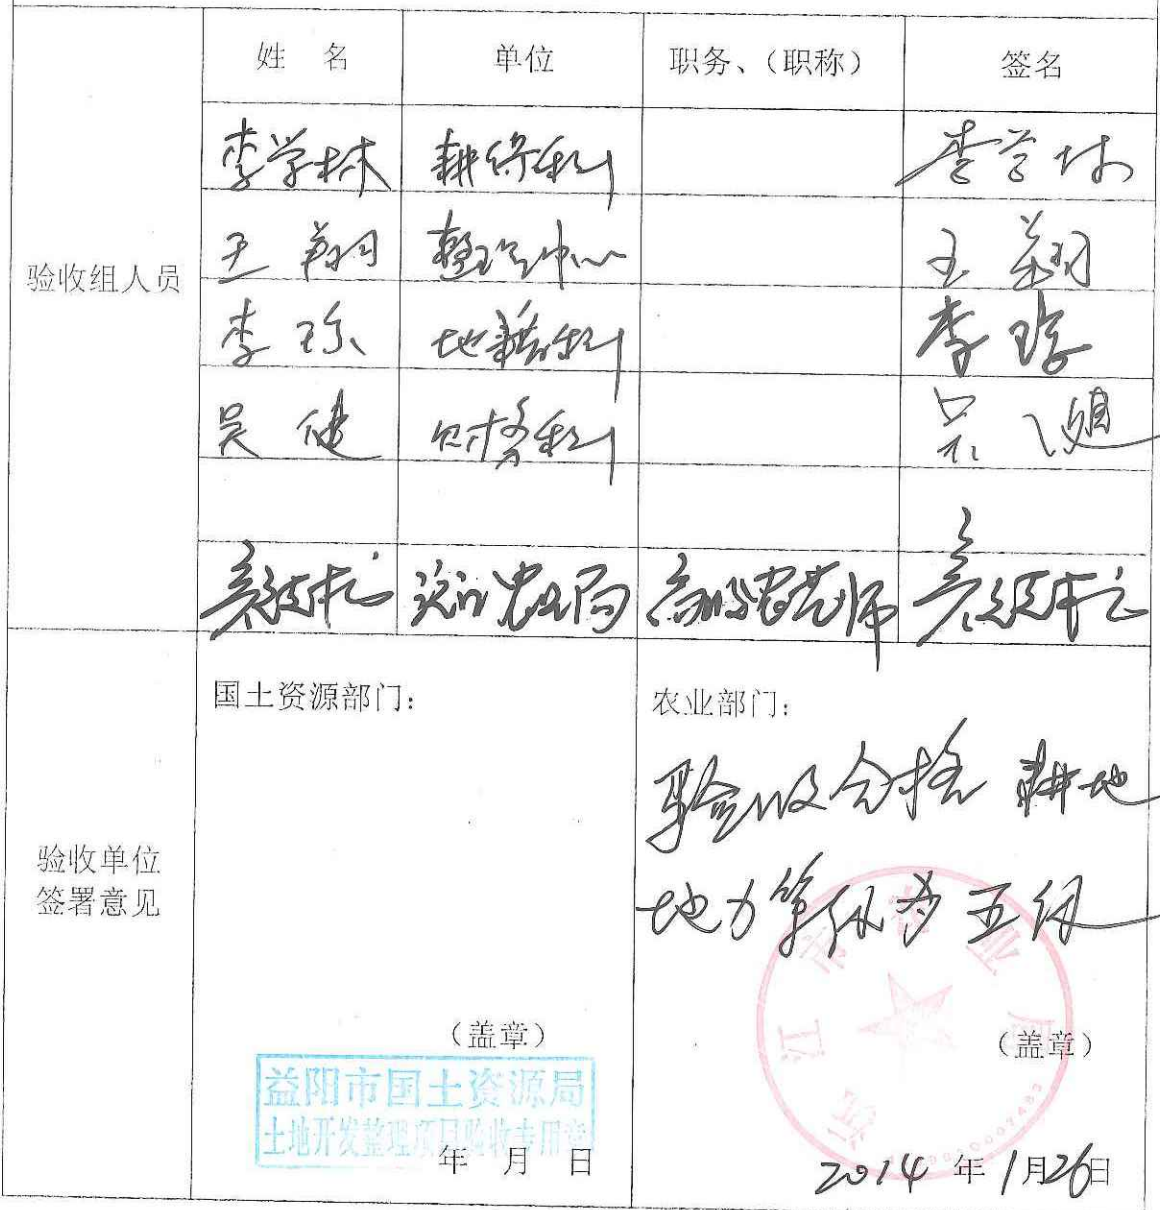 姓 名 单位 职务、（职称） 签名
验收组人员
李学林 耕保科 李学林
王翔 整理中心 王翔
李琼 地籍科 李琼
吴健 财务科 吴健
沅江农业局 高级农艺师
验收单位
签署意见
国土资源部门：
（盖章）
益阳市国土资源局
土地开发整理项目验收专用章
年 月 日
农业部门：
验收合格 耕地
地力等级为五级
沅江市农业局
（盖章）
2014 年 1月26日